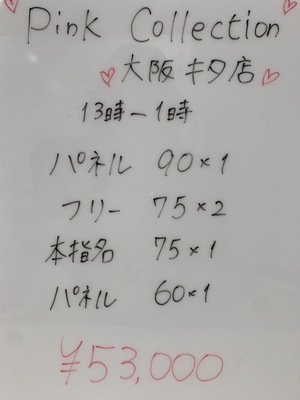 Pink Collection
大阪キタ店
13時-1時
パネル 90×1
フリー 75×2
本指名 75×1
パネル 60×1
¥53,000